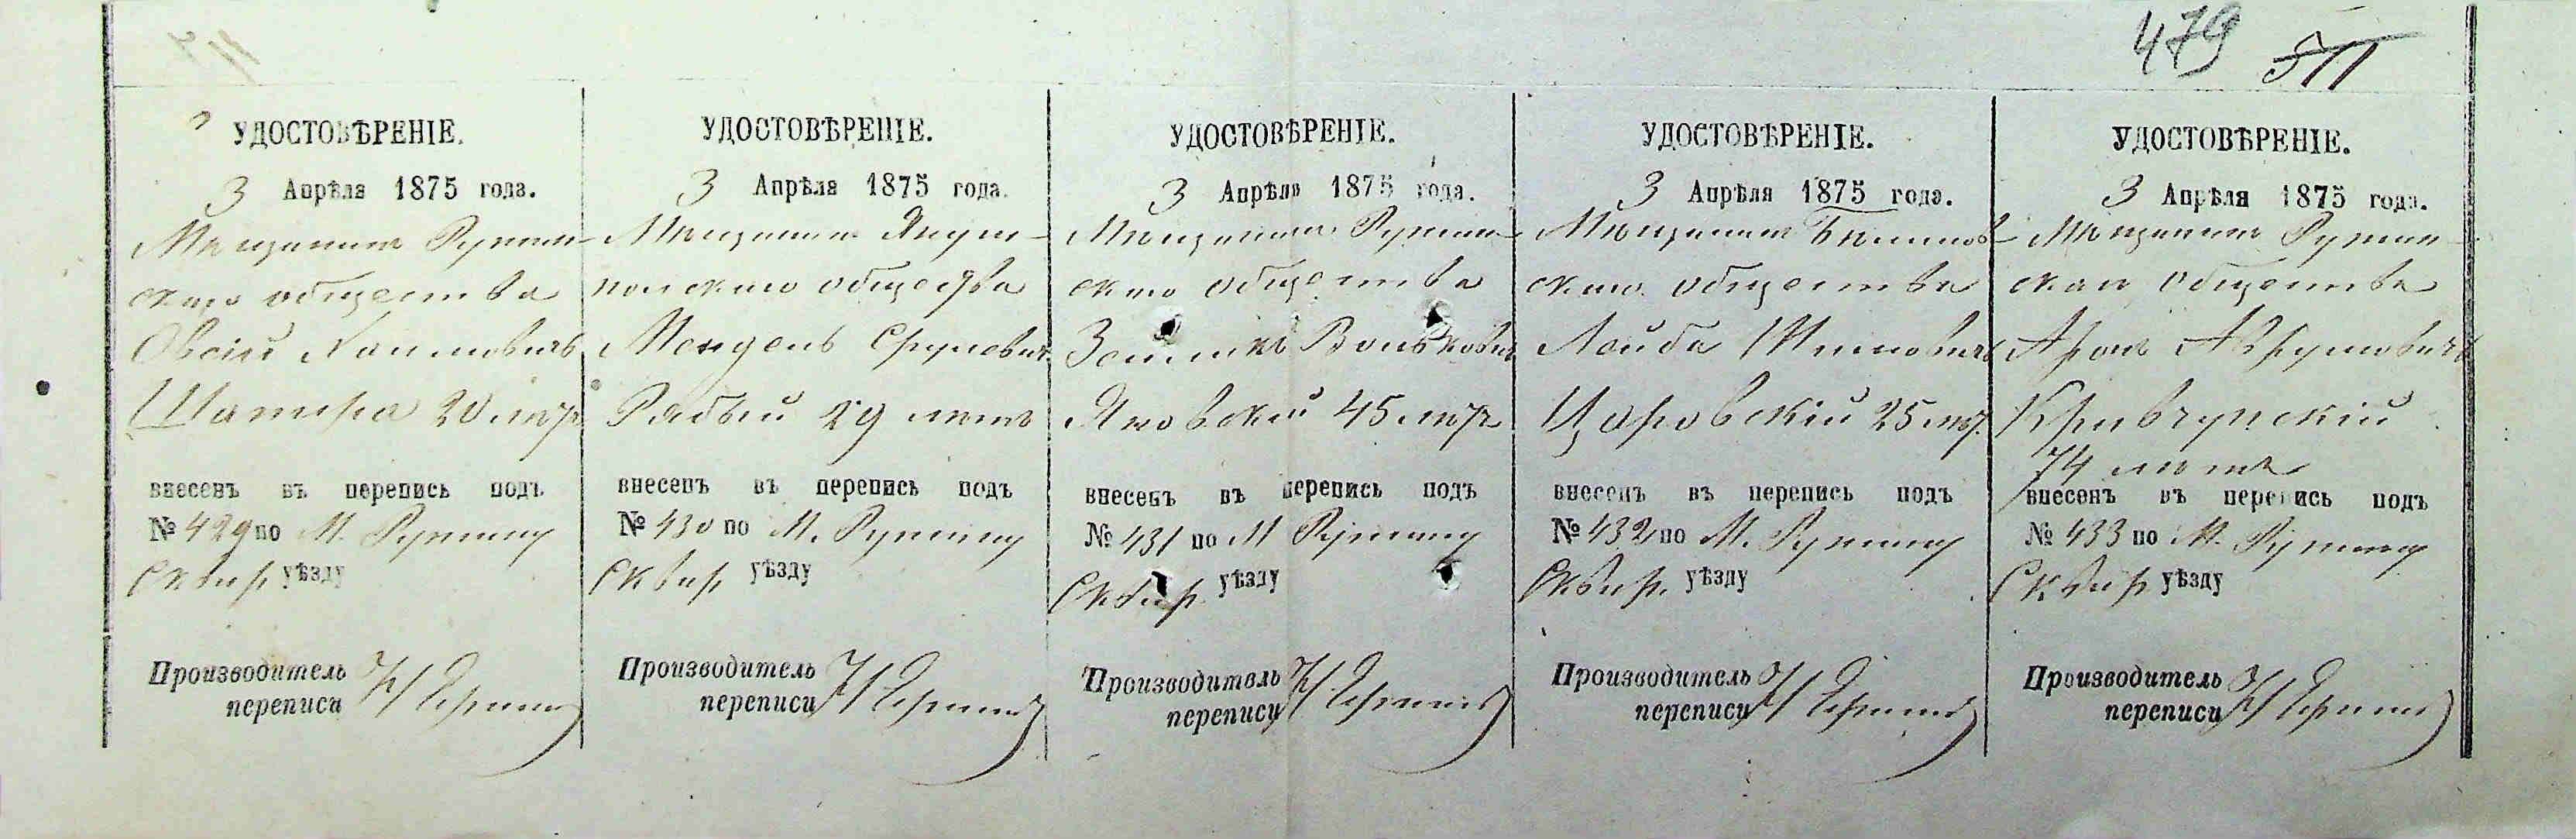 479 511
УДОСТОВѢРЕНІЕ.
3 Апрѣля 1875 года.
Мѣщанинъ Ружин-
скаго общества
Овсій Хаимовичъ
Шапира 20 лѣтъ
внесенъ въ перепись подъ
№ 429 по М. Ружину
Сквир. уѣзду
Производитель
переписи
УДОСТОВѢРЕНІЕ.
3 Апрѣля 1875 года.
Мѣщанинъ
польскаго общества
Мендель Сруловичъ
Рябый 29 лѣтъ
внесенъ въ перепись подъ
№ 430 по М. Ружину
Сквир. уѣзду
Производитель
переписи
УДОСТОВѢРЕНІЕ.
3 Апрѣля 1875 года.
Мѣщанинъ Ружин-
скаго общества
Зейликъ Вольковичъ
Яновскій 45 лѣтъ
внесенъ въ перепись подъ
№ 431 по М Ружину
Сквир. уѣзду
Производитель
переписи
УДОСТОВѢРЕНІЕ.
3 Апрѣля 1875 года.
Мѣщанинъ
скаго общества
Лейба
Царовскій 25 лѣт.
внесенъ въ перепись подъ
№ 432 по М. Ружину
Сквир. уѣзду
Производитель
переписи
УДОСТОВѢРЕНІЕ.
3 Апрѣля 1875 года.
Мѣщанинъ Ружин-
скаго общества
Аронъ Абрумовичъ
Кривчунскій
74 лѣтъ
внесенъ въ перепись подъ
№ 433 по М. Ружину
Сквир уѣзду
Производитель
переписи